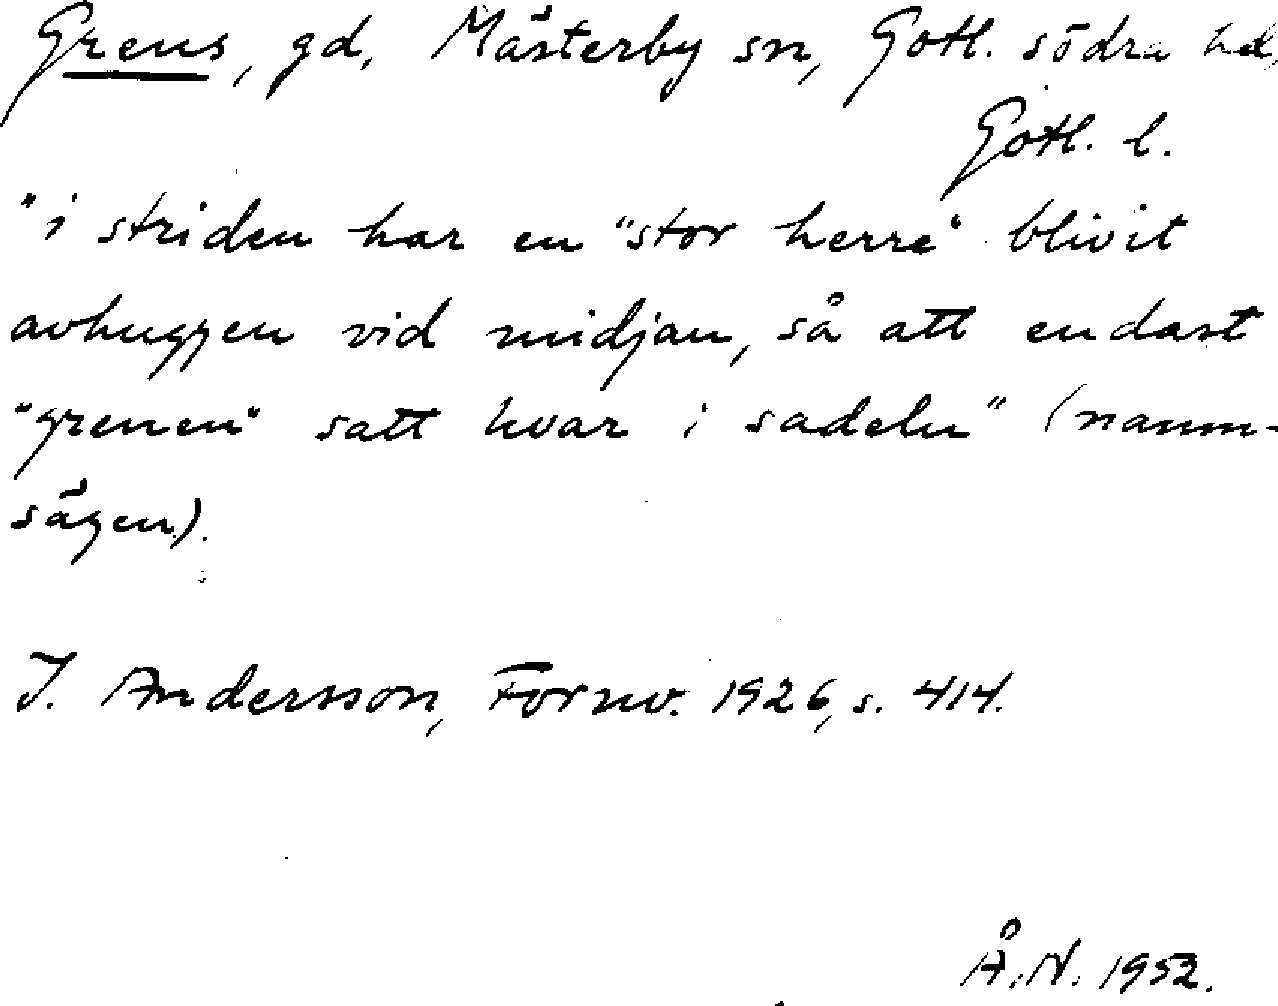 Grens, gd, Mästerby sn, Gotl. södra hd,
Gotl. l.
"i striden har en "stor herre" blivit
avhuggen vid midjan, så att endast
"grenen" satt kvar i sadeln" (namn-
sägen).
J. Andersson, Fornv. 1926, s. 414.
Å.N. 1952.